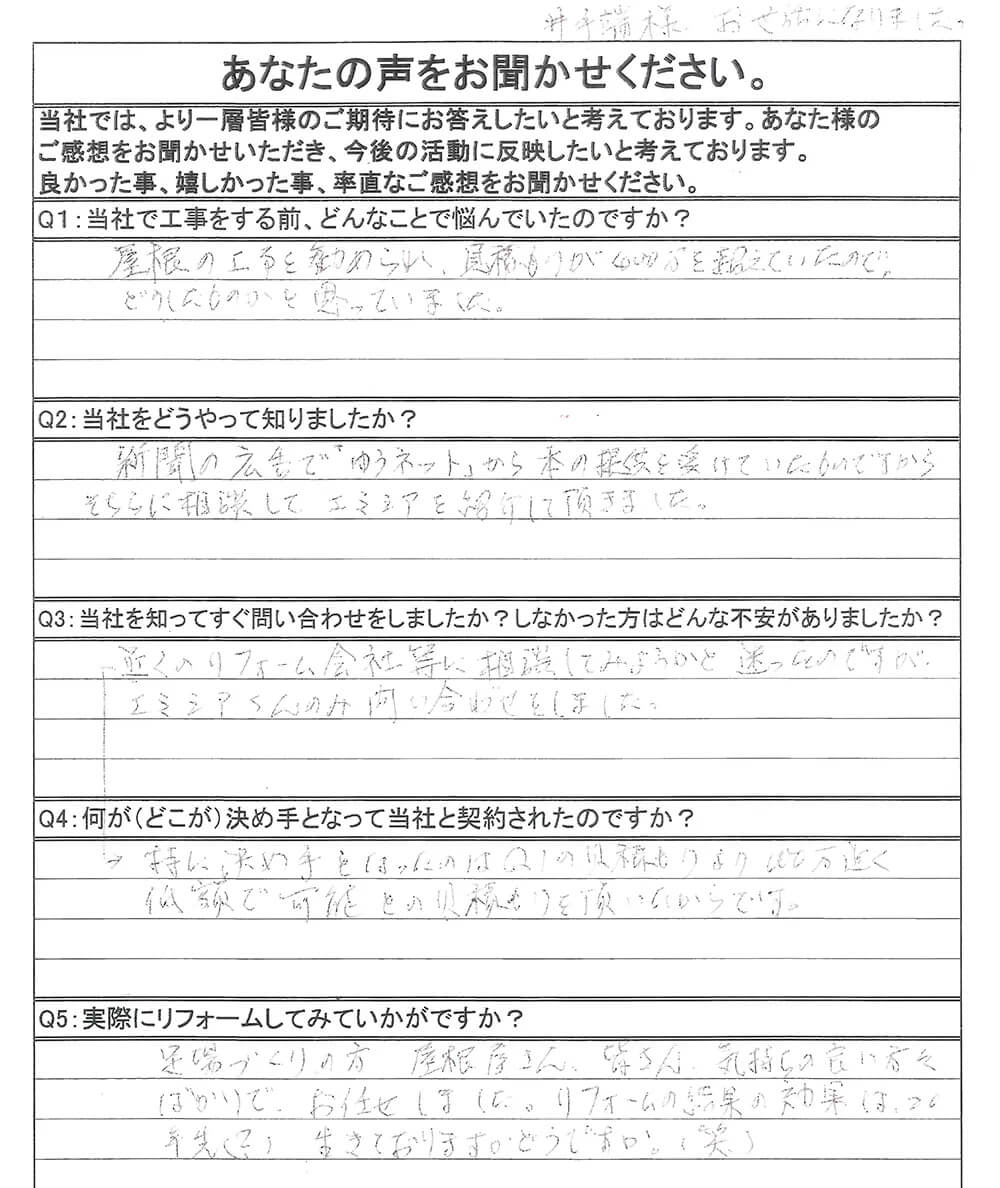 井手端様 お世話になりました。
あなたの声をお聞かせください。
当社では、より一層皆様のご期待にお答えしたいと考えております。あなた様の
ご感想をお聞かせいただき、今後の活動に反映したいと考えております。
良かった事、嬉しかった事、率直なご感想をお聞かせください。
Q1:当社で工事をする前、どんなことで悩んでいたのですか？
屋根の工事を勧められ、見積もりが400万を超えていたので、
どうしたものかと思っていました。
Q2:当社をどうやって知りましたか？
新聞の広告で「ゆうネット」から本の提供を受けていたものですから
そちらに相談してエミシアを紹介して頂きました。
Q3:当社を知ってすぐ問い合わせをしましたか？しなかった方はどんな不安がありましたか？
近くのリフォーム会社等に相談してみようかと迷ったのですが、
エミシアさんのみ問い合わせをしました。
Q4:何が（どこが）決め手となって当社と契約されたのですか？
→ 特に決め手となったのはQ1の見積もりより 万近く
低額で可能との見積もりを頂いたからです。
Q5:実際にリフォームしてみていかがですか？
足場づくりの方 屋根屋さん、皆さん、気持ちの良い方々
ばかりで、お任せしました。リフォームの結果の効果は、20
年先(?) 生きておりますかどうですか。(笑)